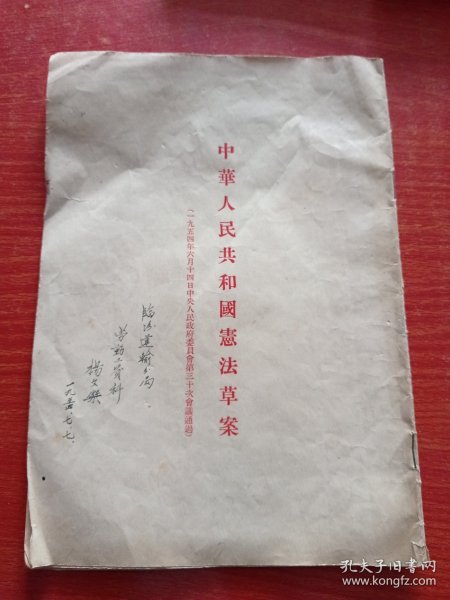 中華人民共和國憲法草案
(一九五四年六月十四日中央人民政府委員會第三十次會議通過)
運輸公司
勞動工資科
楊文
孔夫子旧书网
www.kongfz.com